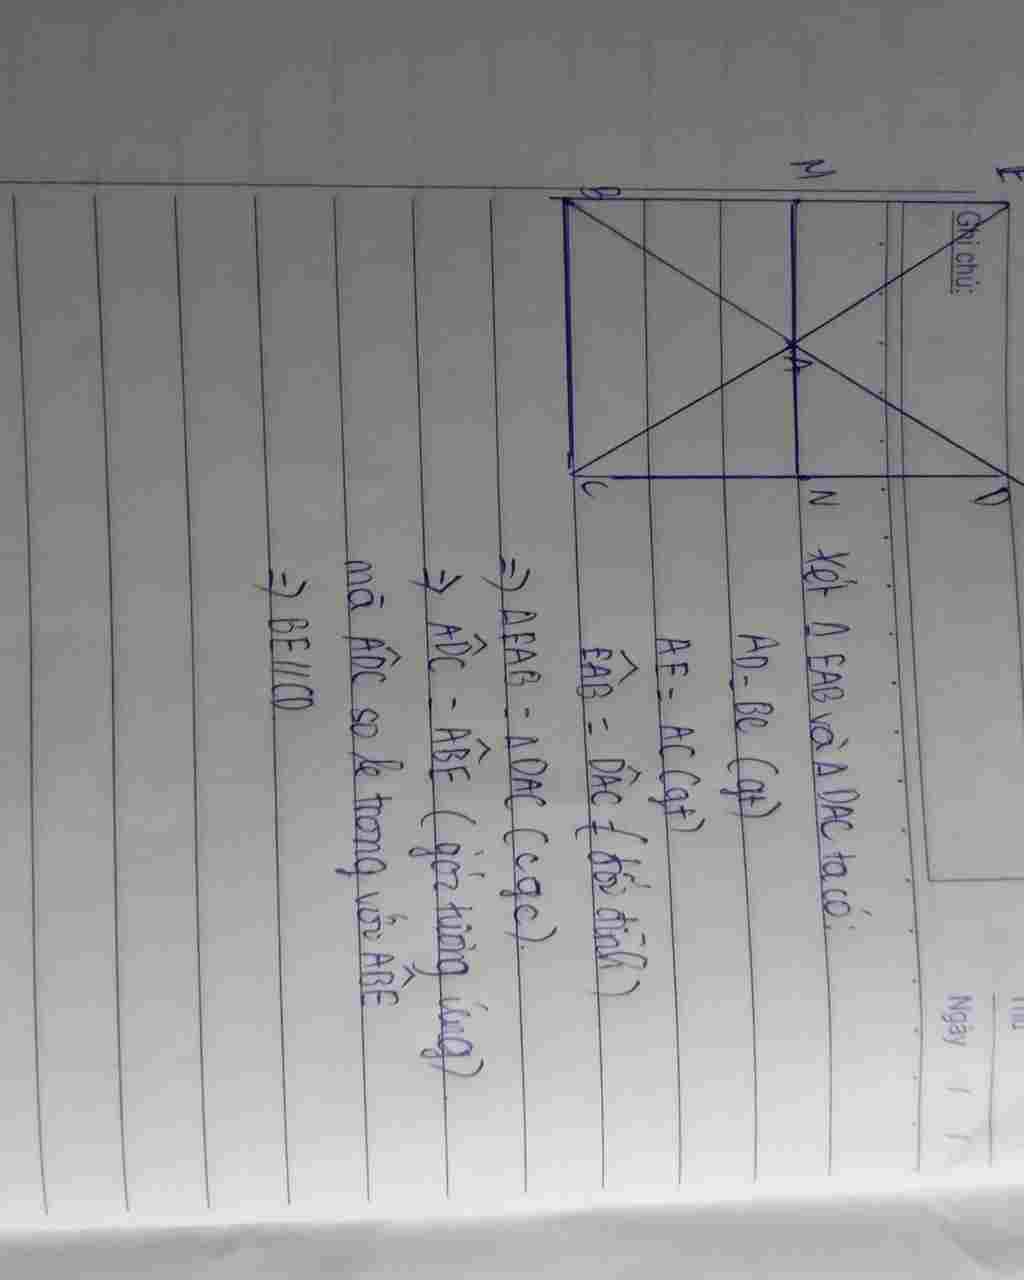 Thứ
Ngày / /
Ghi chú:
E
D
M
A
N
B
C
Xét Δ EAB và Δ DAC ta có:
AD = BC (gt)
AE = AC (gt)
EÂB = DÂC (đối đỉnh)
=) ΔEAB = ΔDAC (cgc).
=) AD̂C = AB̂E (góc tương ứng)
mà AD̂C so le trong với AB̂E
=) BE//CD